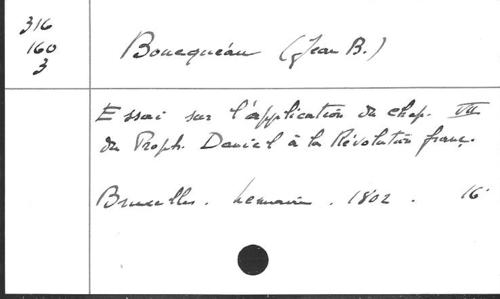 316
160
3
Boucquéau (Jean B.)
Essai sur l'application du chap. VII
du Proph. Daniel à la Révolution franç.
Bruxelles. Lemaire. 1802. 16°